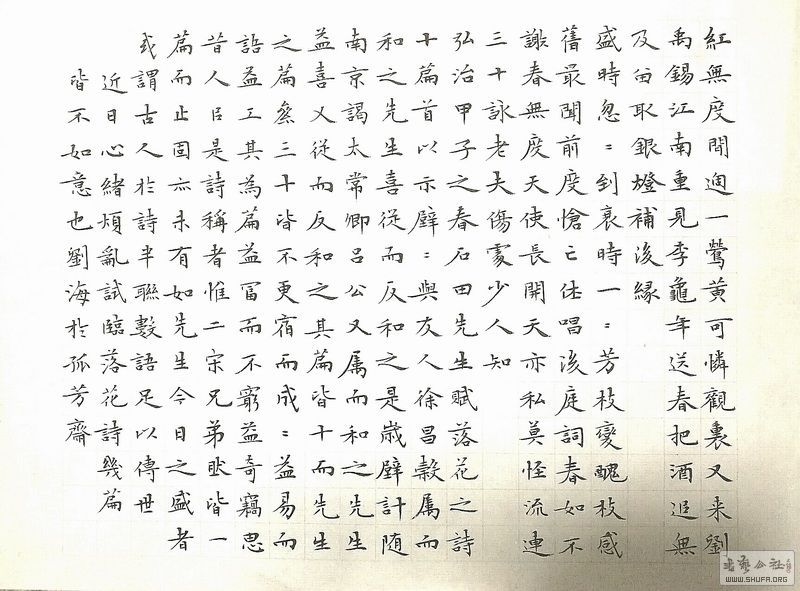 紅無度間過一鶯黃可憐觀裏又来劉
禹錫江南重見李龜年送春把酒追無
及留取銀燈補後緣
盛時忽〻到衰時一〻芳枝變醜枝感
舊最聞前度愴亡休唱後庭詞春如不
謝春無度天使長開天亦私莫怪流連
三十詠老夫傷處少人知
弘治甲子之春石田先生賦落花之詩
十篇首以示壁〻與友人徐昌穀属而
和之先生喜從而反和之是歲壁計随
南京謁太常卿呂公又属而和之先生
益喜又從而反和之其篇皆十而先生
之篇叅三十皆不更宿而成〻益易而
語益工其為篇益富而不窮益奇竊思
昔人臣是詩稱者惟二宋兄弟然皆一
篇而止固亦未有如先生今日之盛者
或謂古人於詩半聯數語足以傳世
近日心緒煩亂試臨落花詩幾篇
皆不如意也劉海於孤芳齋
書法公社
WWW.SHUFA.ORG